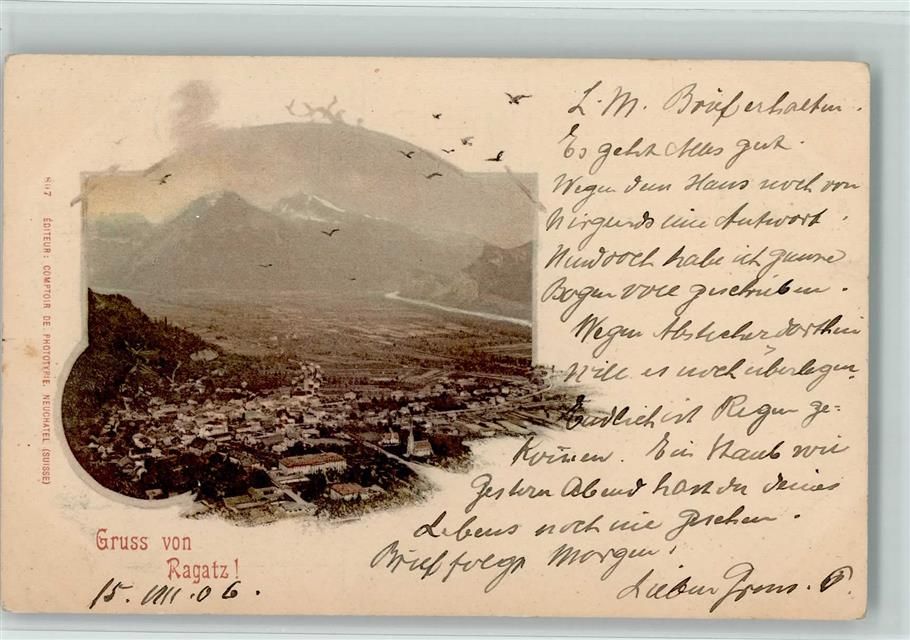 L. M. Brief erhalten.
Es geht Alles gut.
Wegen dem Haus noch von
Nirgends eine Antwort.
Und doch habe ich ganze
Bogen voll geschrieben.
Wegen Abstecher dorthin
Will es noch überlegen.
Endlich ist Regen ge-
Kommen. Ein Staub wie
Gestern Abend hast du deines
Lebens noch nie gesehen.
Brief folgt Morgen!
Lieben Gruss.
Gruss von
Ragatz!
15. VIII. 06.
807 ÉDITEUR: COMPTOIR DE PHOTOTYPIE, NEUCHATEL (SUISSE)